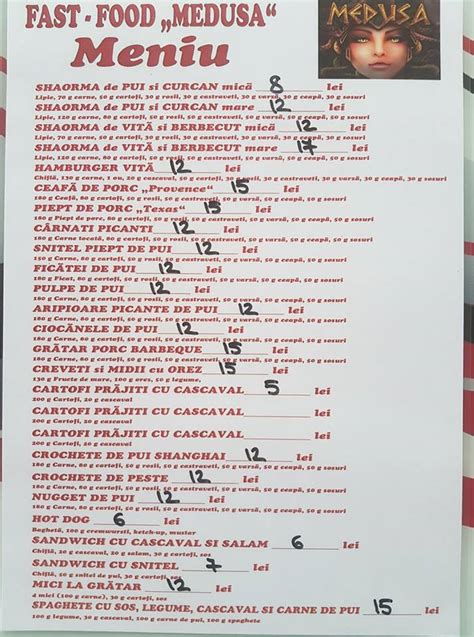 FAST - FOOD „MEDUSA“
MEDUSA
Meniu
SHAORMA de PUI si CURCAN mică 8 lei
Lipie, 70 g carne, 50 g cartofi, 30 g rosii, 30 g castraveti, 30 g varză, 30 g ceapă, 30 g sosuri
SHAORMA de PUI si CURCAN mare 12 lei
Lipie, 120 g carne, 80 g cartofi, 50 g rosii, 50 g castraveti, 50 g varză, 50 g ceapă, 50 g sosuri
SHAORMA de VITĂ si BERBECUT mică 12 lei
Lipie, 70 g carne, 50 g cartofi, 30 g rosii, 30 g castraveti, 30 g varză, 30 g ceapă, 30 g sosuri
SHAORMA de VITĂ si BERBECUT mare 17 lei
Lipie, 120 g carne, 80 g cartofi, 50 g rosii, 50 g castraveti, 50 g varză, 50 g ceapă, 50 g sosuri
HAMBURGER VITĂ 12 lei
Chiflă, 130 g carne, 1 ou, 20 g cascaval, 50 g cartofi, 30 g rosii, 30 g castraveti, 30 g varză, 30 g ceapă, 30 g sosuri
CEAFĂ DE PORC „Provence“ 15 lei
180 g Ceafă, 80 g cartofi, 50 g rosii, 50 g castraveti, 50 g varză, 50 g ceapă, 50 g sosuri
PIEPT DE PORC „Texas“ 15 lei
180 g Piept de porc, 80 g cartofi, 50 g rosii, 50 g castraveti, 50 g varză, 50 g ceapă, 50 g sosuri
CÂRNATI PICANTI 12 lei
180 g Carne tocată, 80 g cartofi, 50 g rosii, 50 g castraveti, 50 g varză, 50 g ceapă, 50 g sosuri
SNITEL PIEPT DE PUI 12 lei
150 g Carne, 80 g cartofi, 50 g rosii, 50 g castraveti, 50 g varză, 50 g ceapă, 50 g sosuri
FICĂTEI DE PUI 12 lei
180 g Ficat, 80 g cartofi, 50 g rosii, 50 g castraveti, 50 g varză, 50 g ceapă, 50 g sosuri
PULPE DE PUI 12 lei
180 g Carne, 80 g cartofi, 50 g rosii, 50 g castraveti, 50 g varză, 50 g ceapă, 50 g sosuri
ARIPIOARE PICANTE DE PUI 12 lei
180 g Carne, 80 g cartofi, 50 g rosii, 50 g castraveti, 50 g varză, 50 g ceapă, 50 g sosuri
CIOCĂNELE DE PUI 12 lei
180 g Carne, 80 g cartofi, 50 g rosii, 50 g castraveti, 50 g varză, 50 g ceapă, 50 g sosuri
GRĂTAR PORC BARBEQUE 15 lei
180 g Carne, 80 g cartofi, 50 g rosii, 50 g castraveti, 50 g varză, 50 g ceapă, 50 g sosuri
CREVETI si MIDII cu OREZ 15 lei
130 g Fructe de mare, 100 g ores, 50 g legume,
CARTOFI PRĂJITI CU CASCAVAL 5 lei
200 g Cartofi, 20 g cascaval
CARTOFI PRĂJITI CU CASCAVAL lei
200 g Cartofi, 20 g cascaval
CARTOFI PRĂJITI CU CASCAVAL lei
200 g Cartofi, 20 g cascaval
CROCHETE DE PUI SHANGHAI 12 lei
180 g Carne, 80 g cartofi, 50 g rosii, 50 g castraveti, 50 g varză, 50 g ceapă, 50 g sosuri
CROCHETE DE PESTE 12 lei
180 g Carne, 80 g cartofi, 50 g rosii, 50 g castraveti, 50 g varză, 50 g ceapă, 50 g sosuri
NUGGET DE PUI 12 lei
180 g Carne, 80 g cartofi, 50 g rosii, 50 g castraveti, 50 g varză, 50 g ceapă, 50 g sosuri
HOT DOG 6 lei
Baghetă, 100 g cremwursti, ketch-up, mustar
SANDWICH CU CASCAVAL SI SALAM 6 lei
Chiflă, 20 g cascaval, 20 g salam, 30 g cartofi, sos
SANDWICH CU SNITEL 7 lei
Chiflă, 50 g snitel de pui, 30 g cartofi, sos
MICI LA GRĂTAR 12 lei
4 mici (100 g carne), 30 g cartofi, sos
SPAGHETE CU SOS, LEGUME, CASCAVAL SI CARNE DE PUI 15 lei
100 g legume, 30 g cascaval, 100 g carne de pui, 100 g spaghete